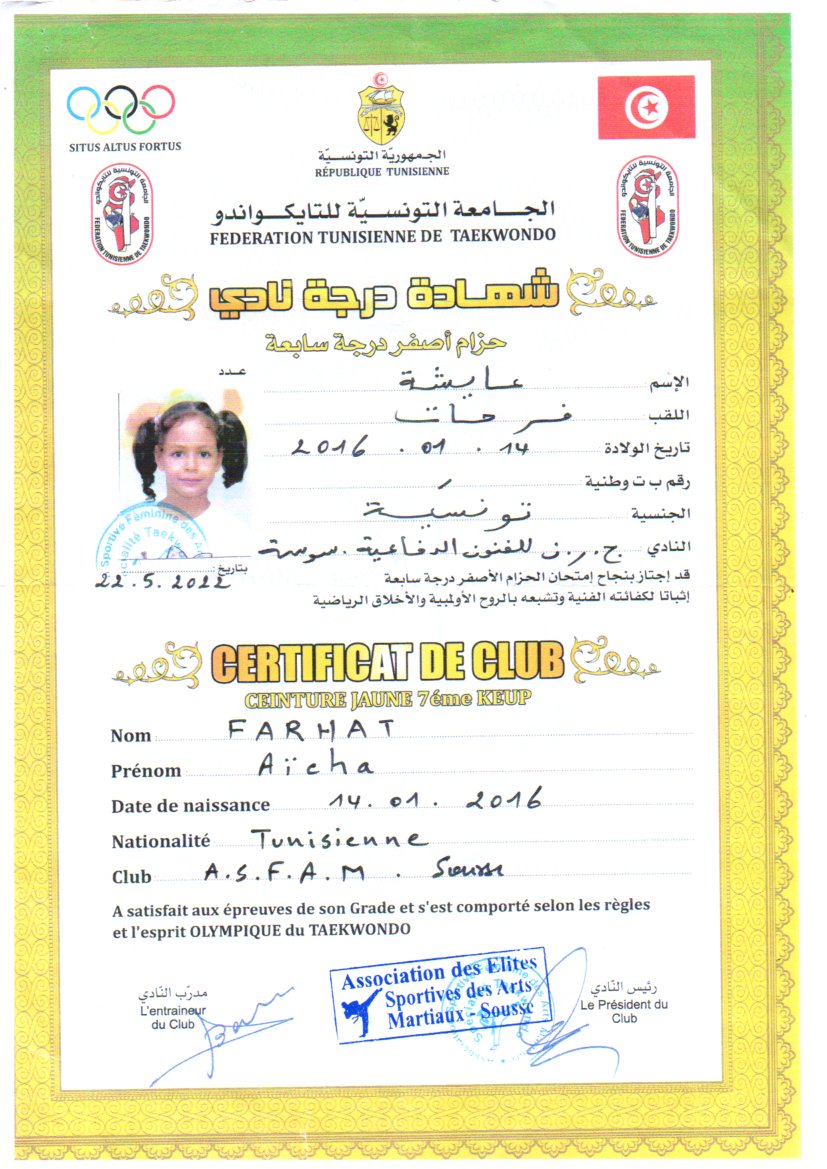 SITUS ALTUS FORTUS
الجمهورية التونسية
RÉPUBLIQUE TUNISIENNE
الجامعة التونسية للتايكواندو
FEDERATION TUNISIENNE DE TAEKWONDO
الجامعة التونسية للتايكواندو
FEDERATION TUNISIENNE DE TAEKWONDO
الجامعة التونسية للتايكواندو
FEDERATION TUNISIENNE DE TAEKWONDO
شهادة درجة نادي
حزام أصفر درجة سابعة
عدد
الإسم عايشة
اللقب فرحات
تاريخ الولادة 14 . 01 . 2016
رقم ب ت وطنية
الجنسية تونسية
النادي ج.ر.ن للفنون الدفاعية . سوسة
Sportive Féminine des A
cialité Taek
بتاريخ : 22.5.2022
قد إجتاز بنجاح إمتحان الحزام الأصفر درجة سابعة
إثباتا لكفائته الفنية وتشبعه بالروح الأولمبية والأخلاق الرياضية
CERTIFICAT DE CLUB
CEINTURE JAUNE 7éme KEUP
Nom FARHAT
Prénom Aïcha
Date de naissance 14.01. 2016
Nationalité Tunisienne
Club A.S.F.A.M . Sousse
A satisfait aux épreuves de son Grade et s'est comporté selon les règles
et l'esprit OLYMPIQUE du TAEKWONDO
مدرّب النّادي
L'entraineur
du Club
Association des Elites
Sportives des Arts
Martiaux - Sousse
رئيس النّادي
Le Président du
Club